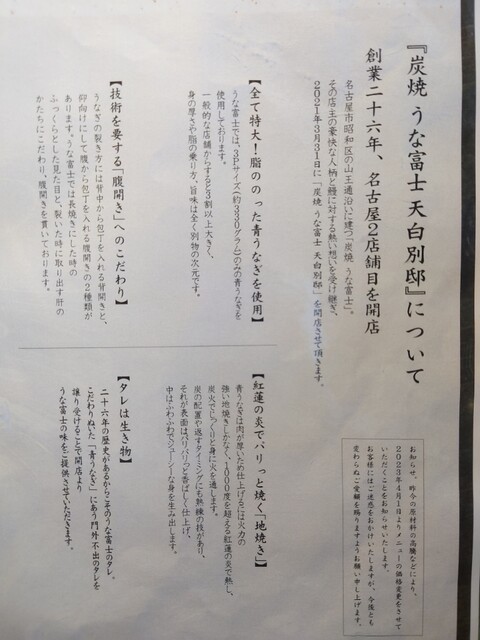 『炭焼 うな富士 天白別邸』について
創業二十六年、名古屋2店舗目を開店
名古屋市昭和区の山王通沿いに建つ「炭焼 うな富士」。
その店主の豪快な人柄と鰻に対する熱い想いを受け継ぎ、
2021年3月31日に「炭焼 うな富士 天白別邸」を開店させて頂きます。
【全て特大！脂ののった青うなぎを使用】
うな富士では、3Pサイズ(約330グラム)のみの青うなぎを
使用しております。
一般的な店舗からすると3割以上大きく、
身の厚さや脂の乗り方、旨味は全く別物の次元です。
【技術を要する「腹開き」へのこだわり】
うなぎの裂き方には背中から包丁を入れる背開きと、
仰向けにして腹から包丁を入れる腹開きの2種類が
あります。うな富士では長焼きにした時の
ふっくらとした見た目と、裂いた時に取り出す肝の
かたちにこだわり、腹開きを貫いております。
お知らせ、昨今の原材料の高騰などにより、
2023年4月1日よりメニューの価格変更をさせて
いただくことをお知らせいたします。
お客様にはご迷惑をおかけいたしますが、今後とも
変わらぬご愛顧を賜りますようお願い申し上げます。
【紅蓮の炎でバリっと焼く「地焼き」】
青うなぎは肉が厚いため仕上げるには火力の
強い地焼きしかなく、1000度を超える紅蓮の炎で熱し、
炭火でじっくりと身に火を通します。
炭の配置や返すタイミングにも熟練の技があり、
それが表面はパリパリっと香ばしく仕上げ、
中はふわふわでジューシーな身を生み出します。
【タレは生き物】
二十六年の歴史があるからこそのうな富士のタレ。
こだわりぬいた「青うなぎ」にあう門外不出のタレを
譲り受けることで開店より
うな富士の味をご提供させていただきます。